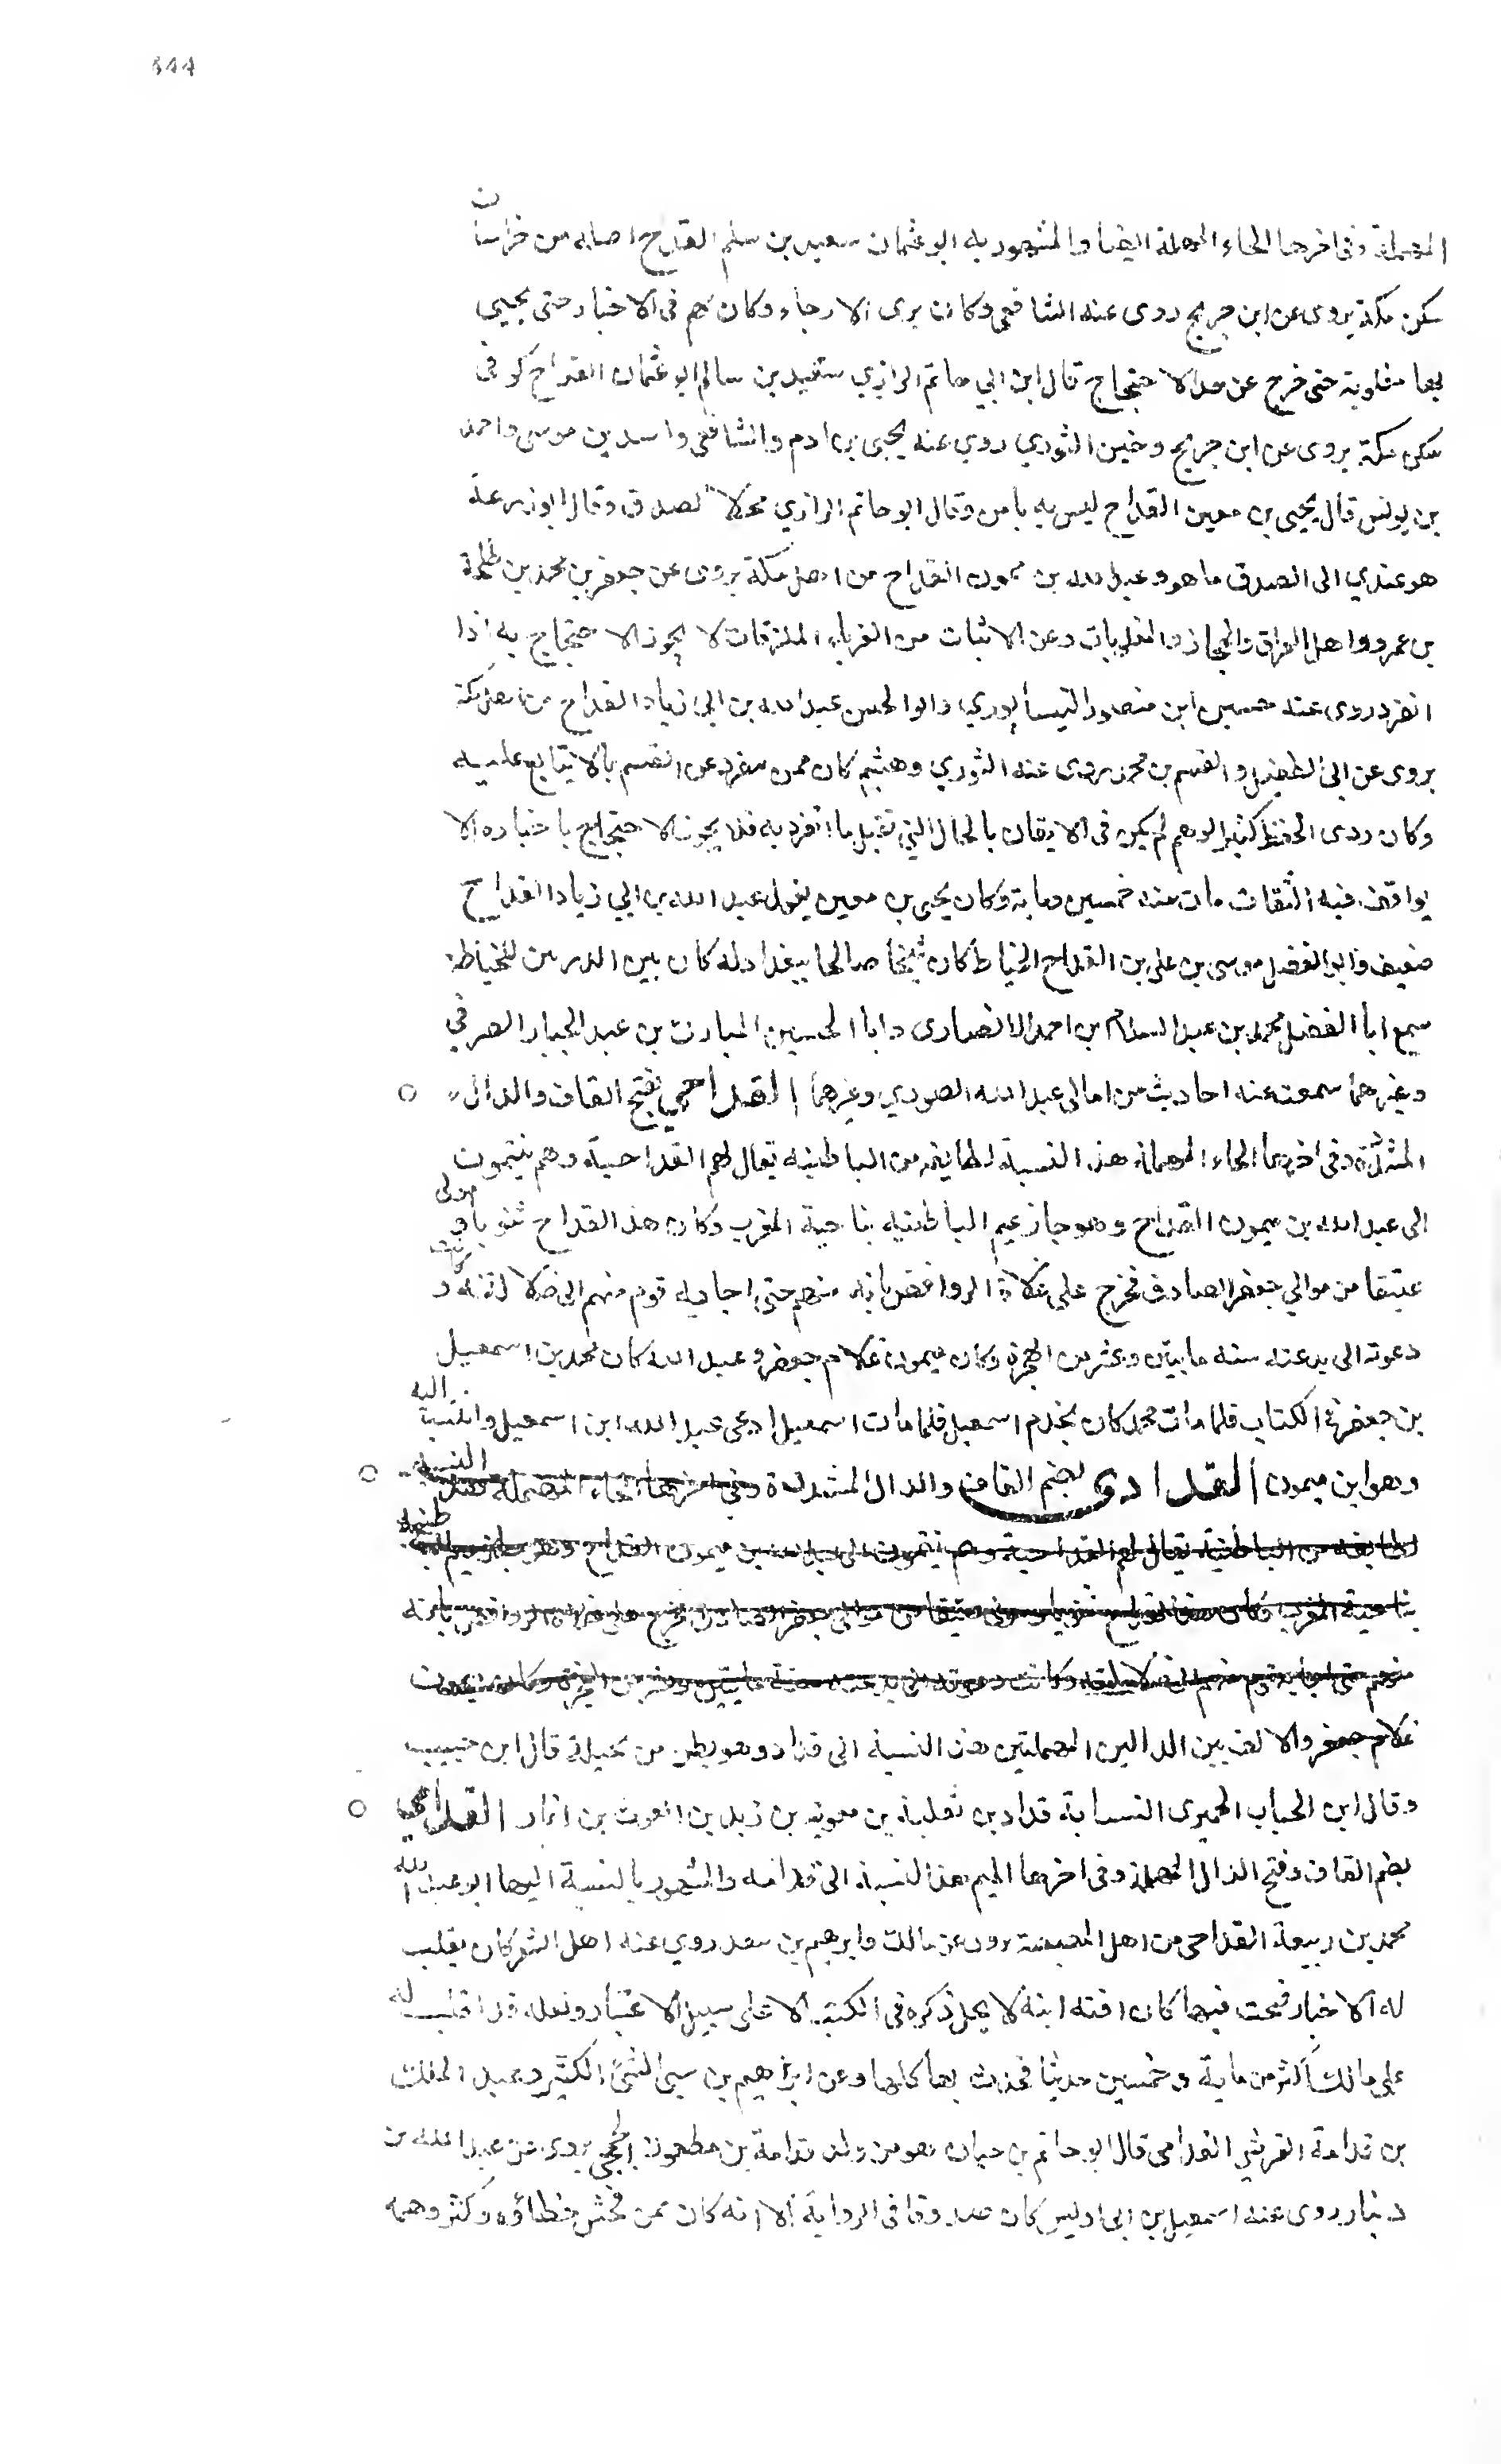 444
المهملة وفى اخرها الحاء المهملة ايضا والمشهور به ابو عثمان سعيد بن سلم القداح اصله من خراسان
سكن مكة يروى عن ابن جريج روى عنه الشافعى وكان يرى الارجاء وكان يهم فى الاخبار حتى يجيى
بها مقلوبة حتى خرج عن حد الاحتجاج قال ابن ابي حاتم الرازي سعيد بن سالم ابو عثمان القداح كوفى
سكن مكة يروى عن ابن جريج و الثوري روي عنه يحيى بن ادم والشافعى واسد بن موسى واحمد
بن يونس قال يحيى بن معين القداح ليس به باس وقال ابو حاتم الرازي محلا لصدق وقال ابو زرعة
هو عندي الى الصدق ما هو وعبد الله بن ميمون القداح من اهل مكة يروى عن جعفر بن محمد بن طلحة
بن عمرو واهل العراق والحجاز المقلوبات وعن الاثبات من الغرباء الملزقات لا يجوز الاحتجاج به اذا
انفرد روى عنه حسين ابن منصور النيسابوري وابو الحسن عبد الله بن ابي زياد القداح من اهل مكة
يروى عن ابي الطفيل والقسم بن محمد روى عنه الثوري وهشيم كان ممن ينفرد عن القسم بالا يتابع عليه
وكان ردى الحفظ كثير الوهم لم يكن فى الاتقان بالحال التي تقبل ما انفرد به فلا يجوز الاحتجاج باخباره الا
يوافق فيه الثقات مات سنه خمسين وماية وكان يحيى بن معين يقول عبد الله بن ابي زياد القداح
ضعيف وابو الفضل موسى بن على بن القداح الخياط كان شيخا صالحا ببغداد له كان بين الدربين للخياطة
سمع ابا الفضل محمد بن عبد السلام بن احمد الانصارى وابا الحسين المبارك بن عبد الجبار الصرفي
وغيرهما سمعت عنه احاديث من امالى عبد الله الصوري وغيرهما القداحي بفتح القاف والدال
المشددة وفى اخرها الحاء المهملة هذه النسبة لطايفه من الباطنيه يقال لهم القداحية وهم ينتمون
الى عبد الله بن ميمون القداح وهو زعيم الباطنيه بناحية المغرب وكان هذا القداح ثنويا و مولى
عتيقا من موالي جعفر الصادق فخرج على غلاة الروافض بانه منهم حتى اجابه قوم منهم الى ضلالاته و
دعوته الى بدعته سنه مايتين وعشر من الهجرة وكان ميمون غلام جعفر وعبد الله كان محمد بن اسمعيل
بن جعفر فى الكتاب فلما مات محمد كان يخدم اسمعيل فلما مات اسمعيل ادعى عبد الله ابن اسمعيل والنسبة اليه
وهو ابن ميمون القدادى بضم القاف والدال المشددة وفى اخرها الحاء المهملة هذه النسبه
لطايفه من الباطنية يقال لهم القداحية وهم ينتمون الى عبد الله بن ميمون القداح وهو زعيم الباطنيه
بناحية المغرب وكان هذا القداح ثنويا ومولى عتيقا من موالى جعفر الصادق فخرج على غلاة الروافض بانه
منهم حتى اجابه قوم منهم الى ضلالته وكانت دعوته الى بدعته سنة مايتين وعشر من الهجرة وكان ميمون
غلام جعفر والالف بين الدالين المهملتين هذه النسبة الى قداد وهو بطن من بجيلة قال ابن حبيب
وقال ابن الحباب الحميرى النسابة قداد بن ثعلبة بن معوية بن زيد بن الغوث بن انمار القدامي
بضم القاف وفتح الدال المهملة وفى اخرها الميم هذه النسبة الى قدامه والمشهور بالنسبة اليها ابو عبد الله
محمد بن ربيعة القدامى من اهل المصيصة يروى عن مالك وابرهيم بن سعد روي عنه اهل الثغر كان يقلب
له الاخبار فيحت فيها كان افته ابنه لا يحل ذكره فى الكتب الا على سبيل الاعتبار ولعله قد اقلب له
على مالك اكثر من ماية وخمسين حديثا فحدث بها كلها وعن ابرهيم بن سعد الشئ الكثير وعبد الملك
بن قدامة القرشي القدامى قال ابو حاتم بن حبان هو من ولد قدامة بن مظعون الجمحي يروى عن عبد الله بن
دينار روى عنه اسمعيل بن ابى اويس كان صدوقا فى الرواية الا انه كان ممن فحش خطاؤه وكثر وهمه